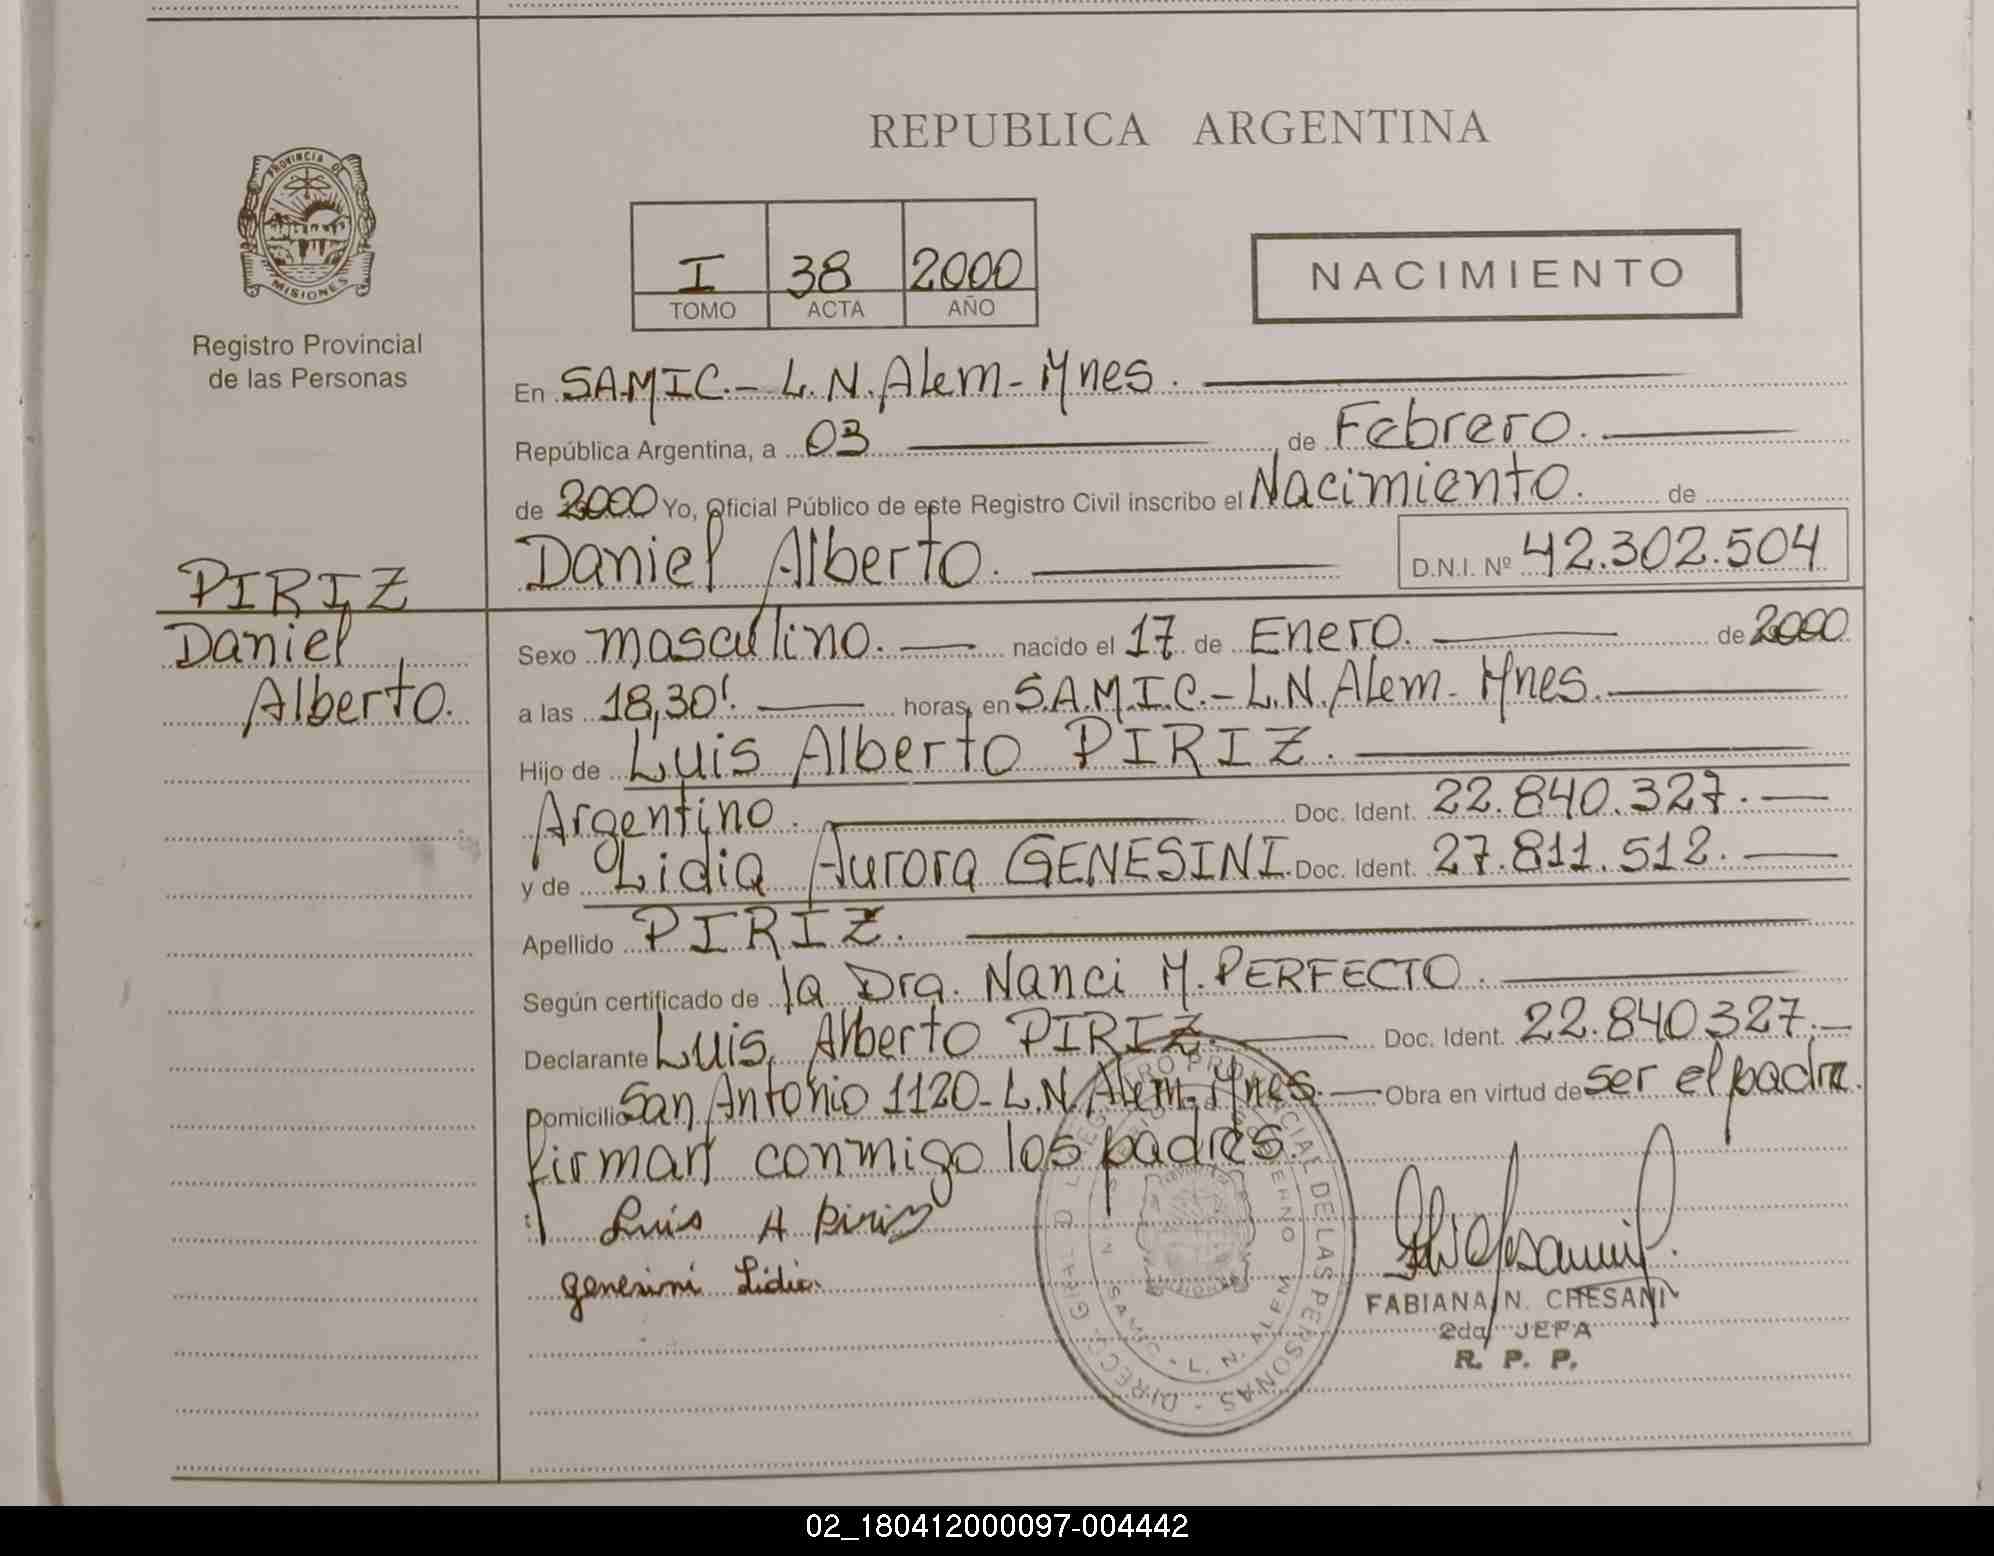 REPUBLICA ARGENTINA
PROVINCIA DE
MISIONES
Registro Provincial
de las Personas
I 38 2000
TOMO ACTA AÑO
NACIMIENTO
En SAMIC.- L.N.Alem-Mnes.
República Argentina, a 03 de Febrero.
de 2000 Yo, Oficial Público de este Registro Civil inscribo el Nacimiento. de
Daniel Alberto. D.N.I. Nº 42.302.504
PIRIZ
Daniel
Alberto.
Sexo masculino. nacido el 17 de Enero. de 2000
a las 18,30'. horas, en S.A.M.I.C.- L.N.Alem- Mnes.
Hijo de Luis Alberto PIRIZ.
Argentino. Doc. Ident. 22.840.327.
y de Lidia Aurora GENESINI. Doc. Ident. 27.811.512.
Apellido PIRIZ.
Según certificado de la Dra. Nanci M. PERFECTO.
Declarante Luis Alberto PIRIZ. Doc. Ident. 22.840.327.
Domicilio San Antonio 1120- L.N.Alem-Mnes. Obra en virtud de ser el padre.
firman conmigo los padres.
Luis A Piriz
Genesini Lidia.
DIRECC. GRAL. DEL REGISTRO PROVINCIAL DE LAS PERSONAS
SAMIC - L. N. ALEM
FABIANA N. CHESANI
2da JEFA
R. P. P.
02_180412000097-004442